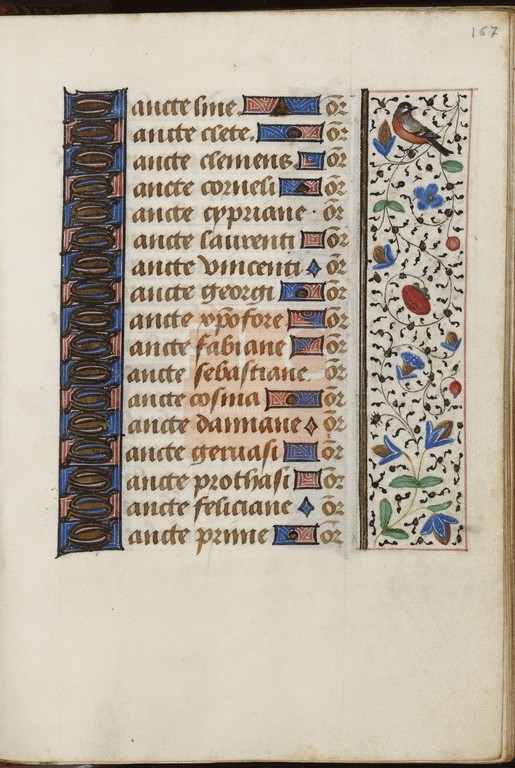 167
Sancte line. or̄
Sancte clete. or̄
Sancte clemens or̄
Sancte corneli or̄
Sancte cypriane · or̄
Sancte laurenti or̄
Sancte vincenti or̄
Sancte georgi or̄
Sancte xp̄ofore or̄
Sancte fabiane or̄
Sancte sebastiane. or̄
Sancte cosma or̄
Sancte damiane or̄
Sancte geruasi or̄
Sancte prothasi or̄
Sancte feliciane or̄
Sancte prime or̄